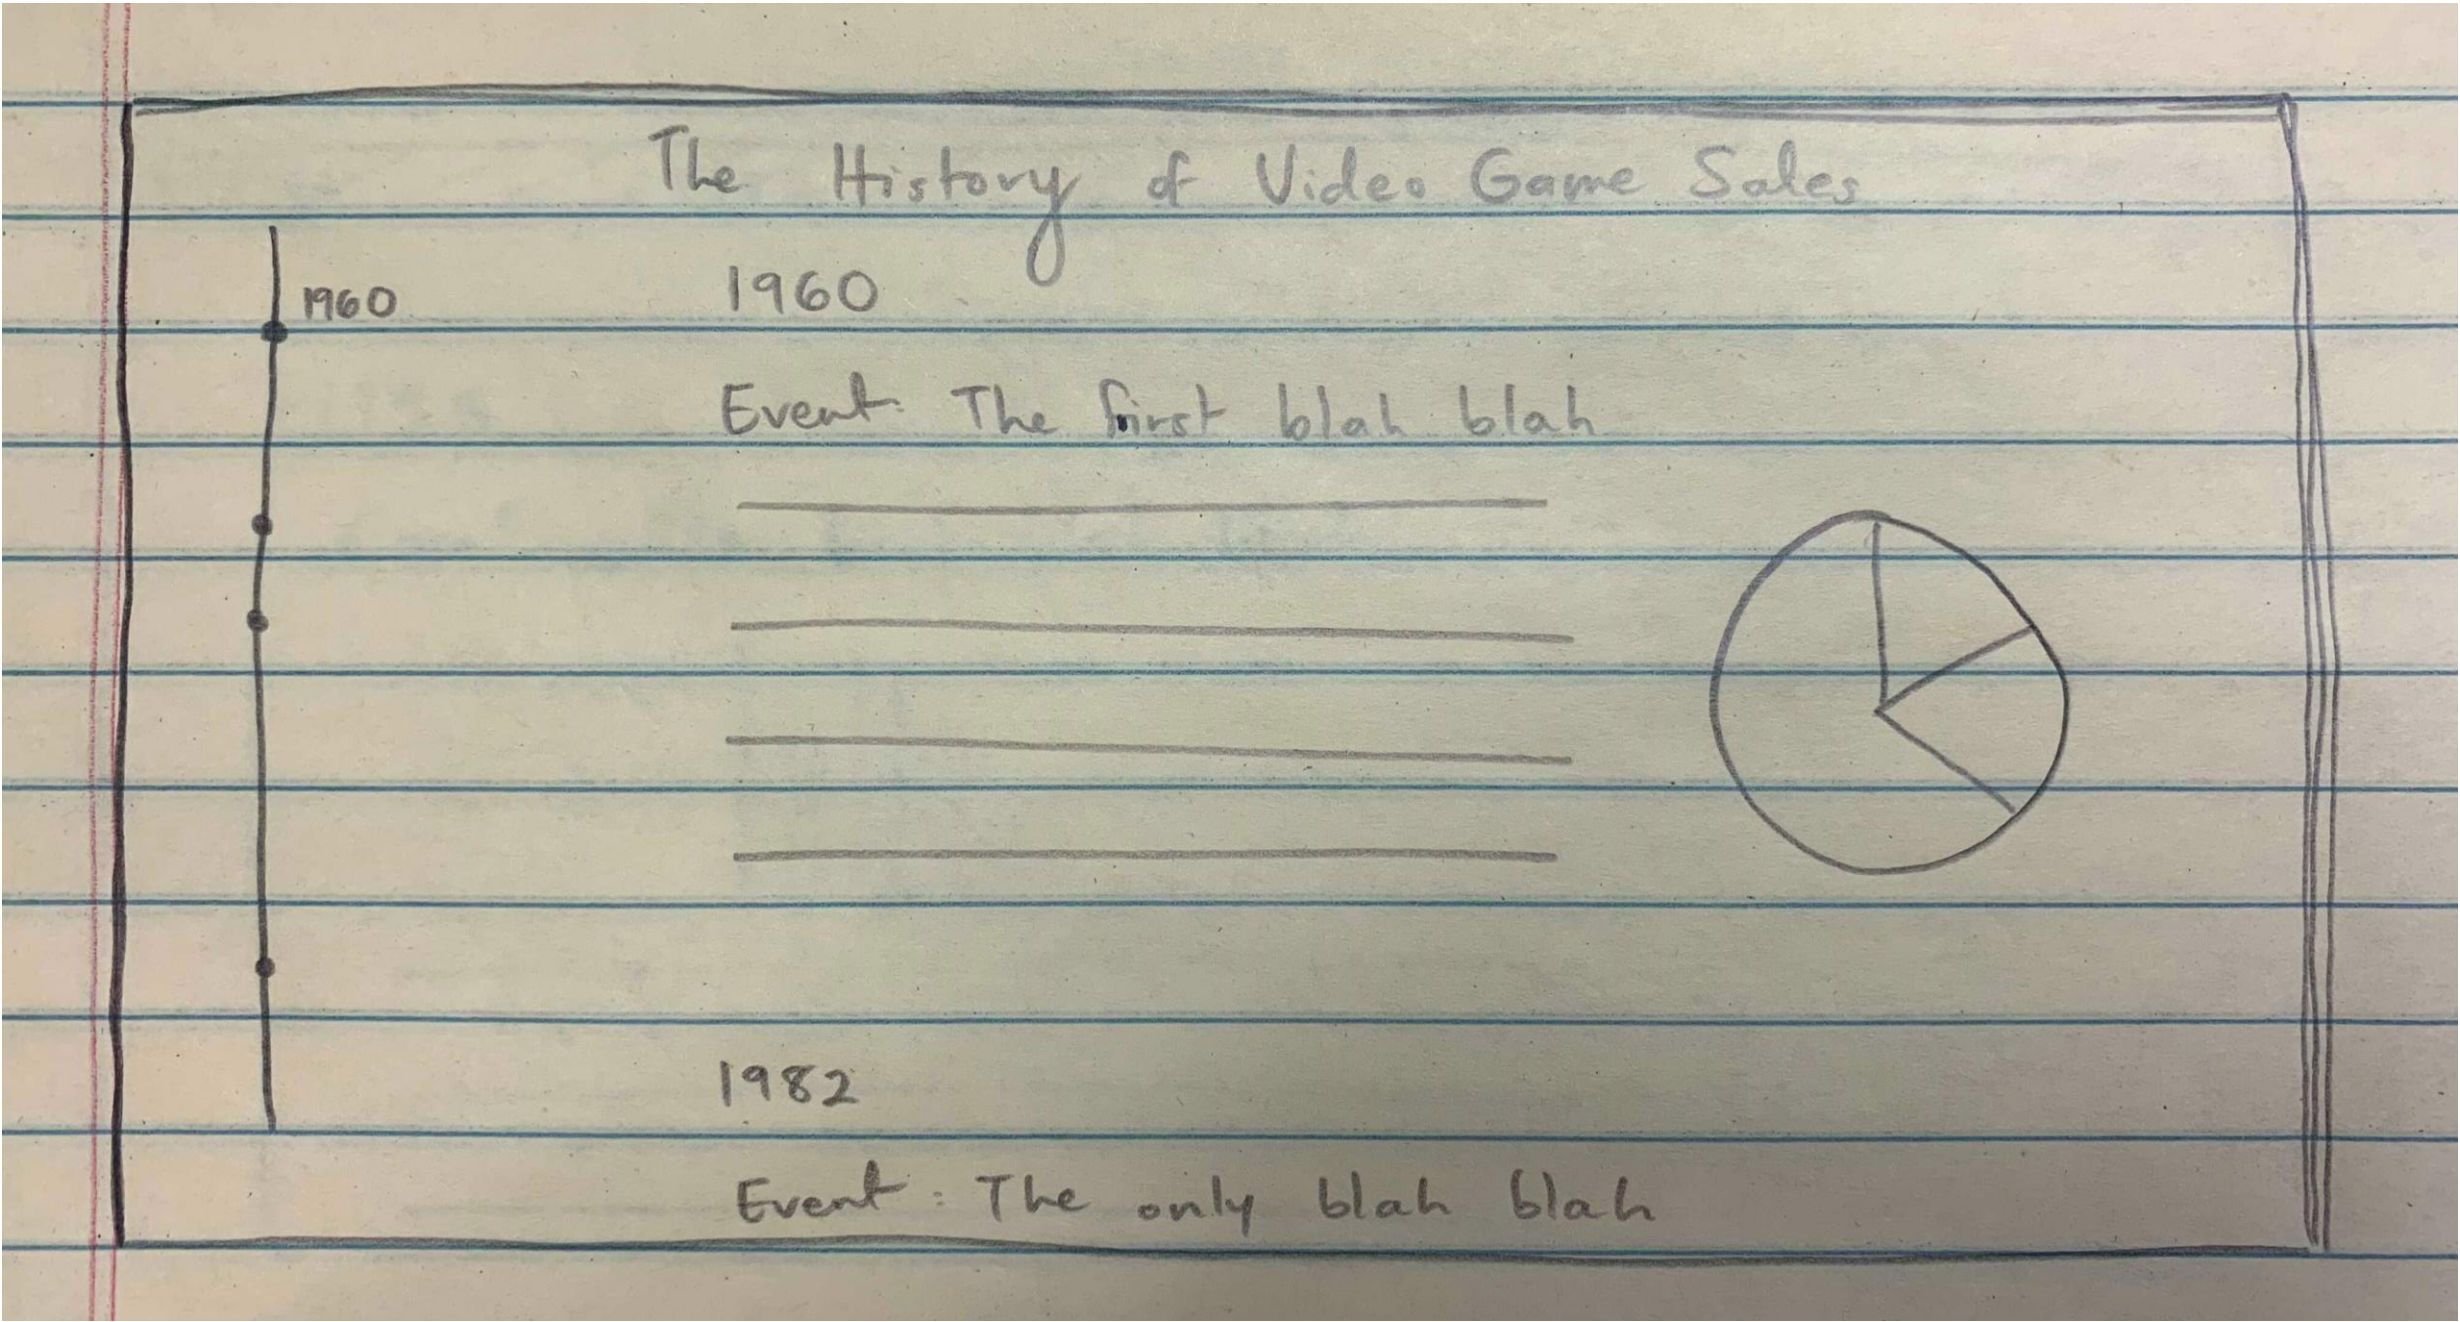 The History of Video Game Sales
1960
1960
Event: The first blah blah
1982
Event: The only blah blah